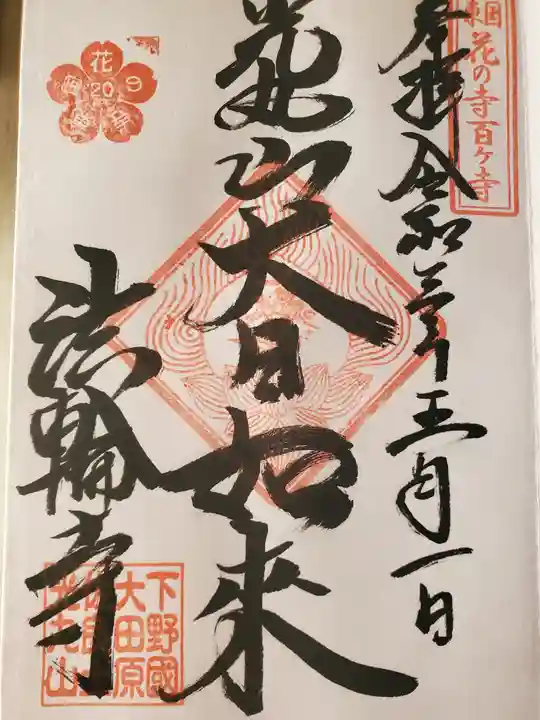 東国花の寺百ヶ寺
奉拝 令和三年五月一日
光丸山大日如来
法輪寺
花
20
下野國
大田原
光丸山